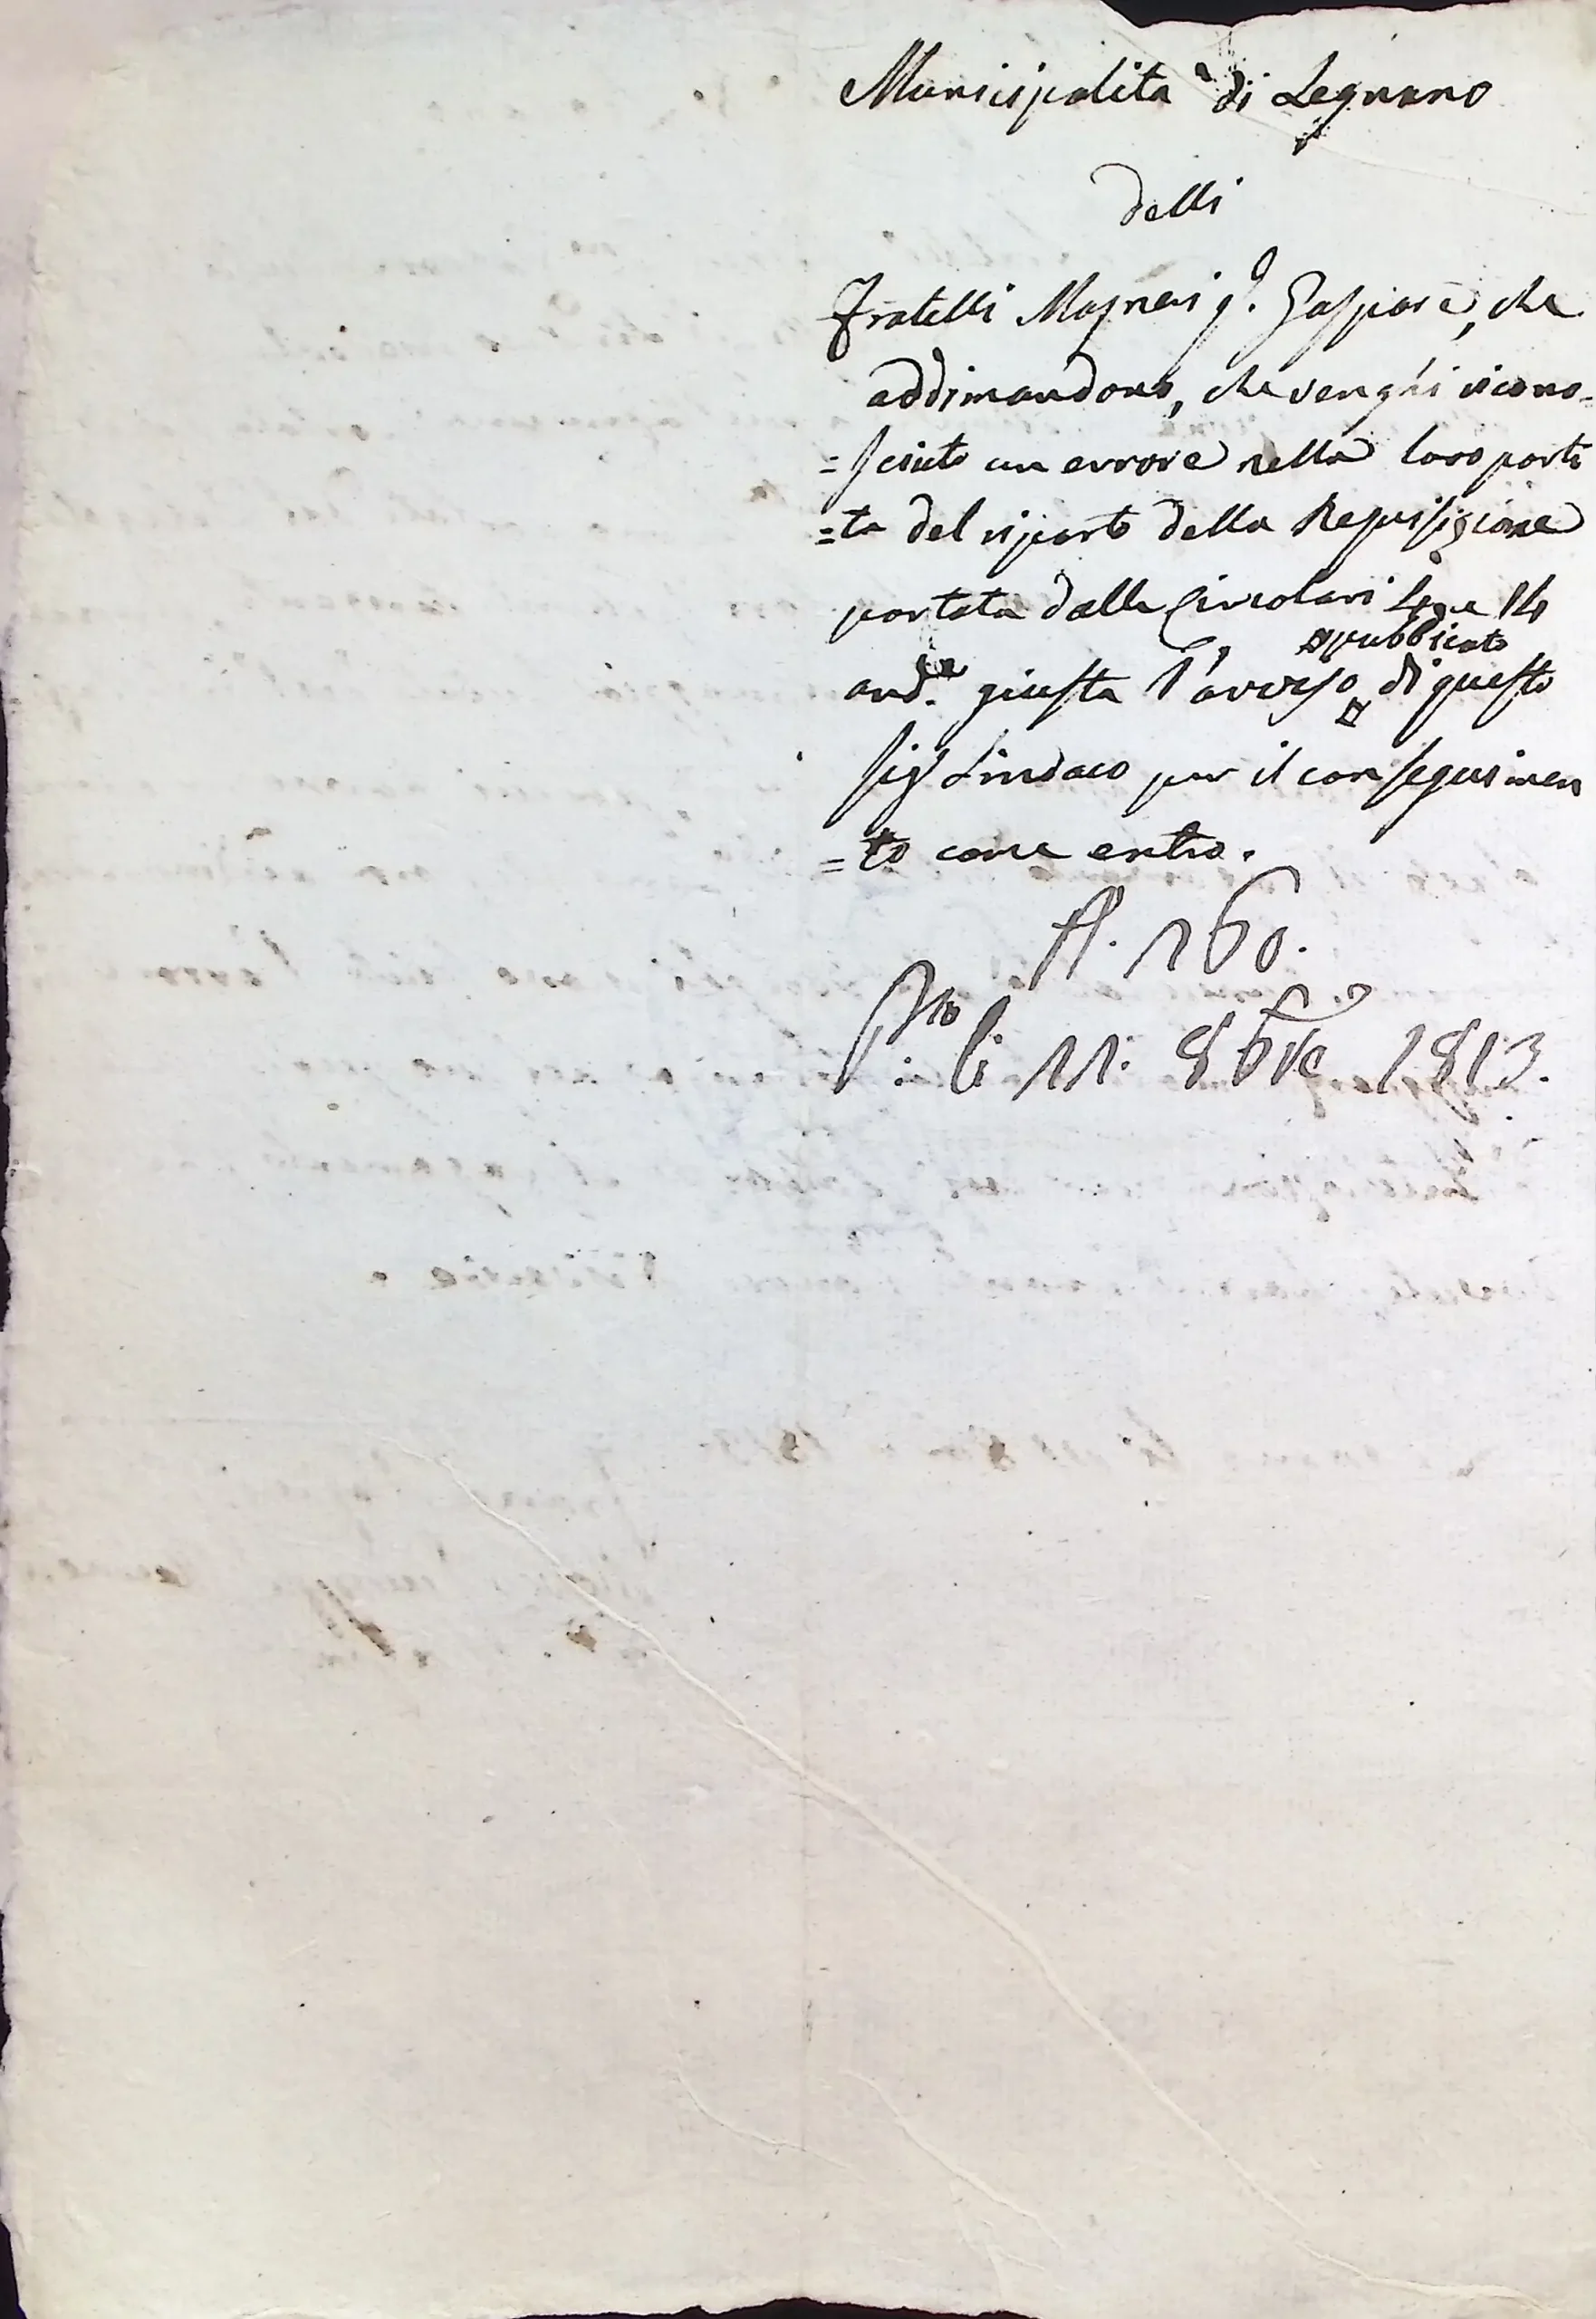 Municipalità di Legnano
delli
Fratelli q. Gaspare, che
addimandono, che venghi ricono-
=sciuto un errore nella loro parti
=ta del riparto della Requisizione
portata dalle Circolari 4. e 14
¤ pubblicato
and.te giusta l'avviso ¤ di questo
sig.r Sindaco per il conseguimen
=to come entro.
N. 160.
P.to li 11. 8bre 1813.